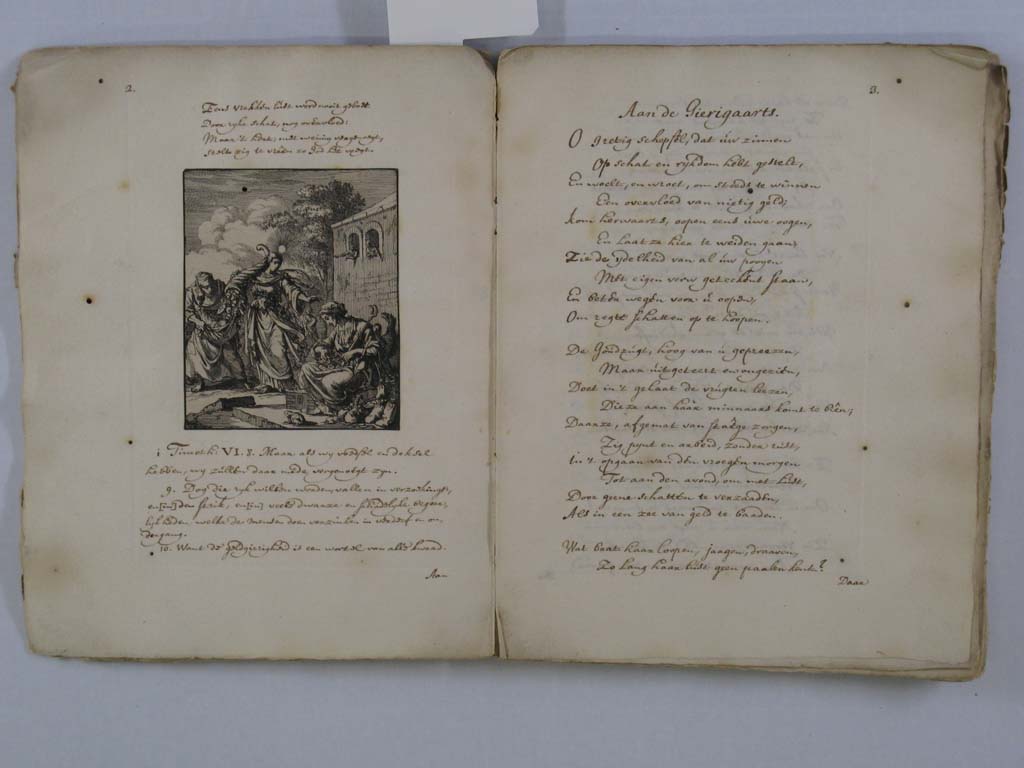 2.
Eens vrekken lust word nooit geboet
Door ryke schat, nog overvloed:
Maar 't hert, met weinig
te vreên zo God het voegt.
1 Timoth: VI. 8. Maar als wy voedsel en deksel
hebben, wy zullen daar mede vergenoegt zyn.
9. Dog die ryk willen worden, vallen in verzoekinge,
en in den strik, en in veele dwaaze en schadelyke begeer-
lykheden, welke de menschen doen verzinken in verderf en on-
dergang.
10. Want de geldgierigheid is een wortel van alle kwaad.
Aan
3.
Aan de Gierigaarts.
O gretig schepsel, dat uw zinnen
Op schat en rykdom hebt gestelt,
En woelt, en wroet, om steeds te winnen
Een overvloed van nietig geld;
Kom herwaarts, oopen eens uwe oogen,
En laat ze hier te weiden gaan;
Zie de ydelheid van al uw poogen
Met eigen verw getekent staan,
En beter wegen voor u oopen,
Om regte schatten op te hoopen.
De Goudzugt, hoog van u gepreezen,
Maar uitgeteert en ongezien,
Doet in 't gelaat de vrugten leezen,
Die ze aan haar minnaars komt te biên;
Daar ze, afgemat van staage zorgen,
Zig pynt en arbeid, zonder rust,
In 't opgaan van den vroegen morgen
Tot aan den avond, om met lust,
Door geene schatten te verzaaden,
Als in een zee van geld te baaden.
Wat baat haar loopen, jaagen, draaven,
Zo lang haar lust geen paalen kent?
Daar